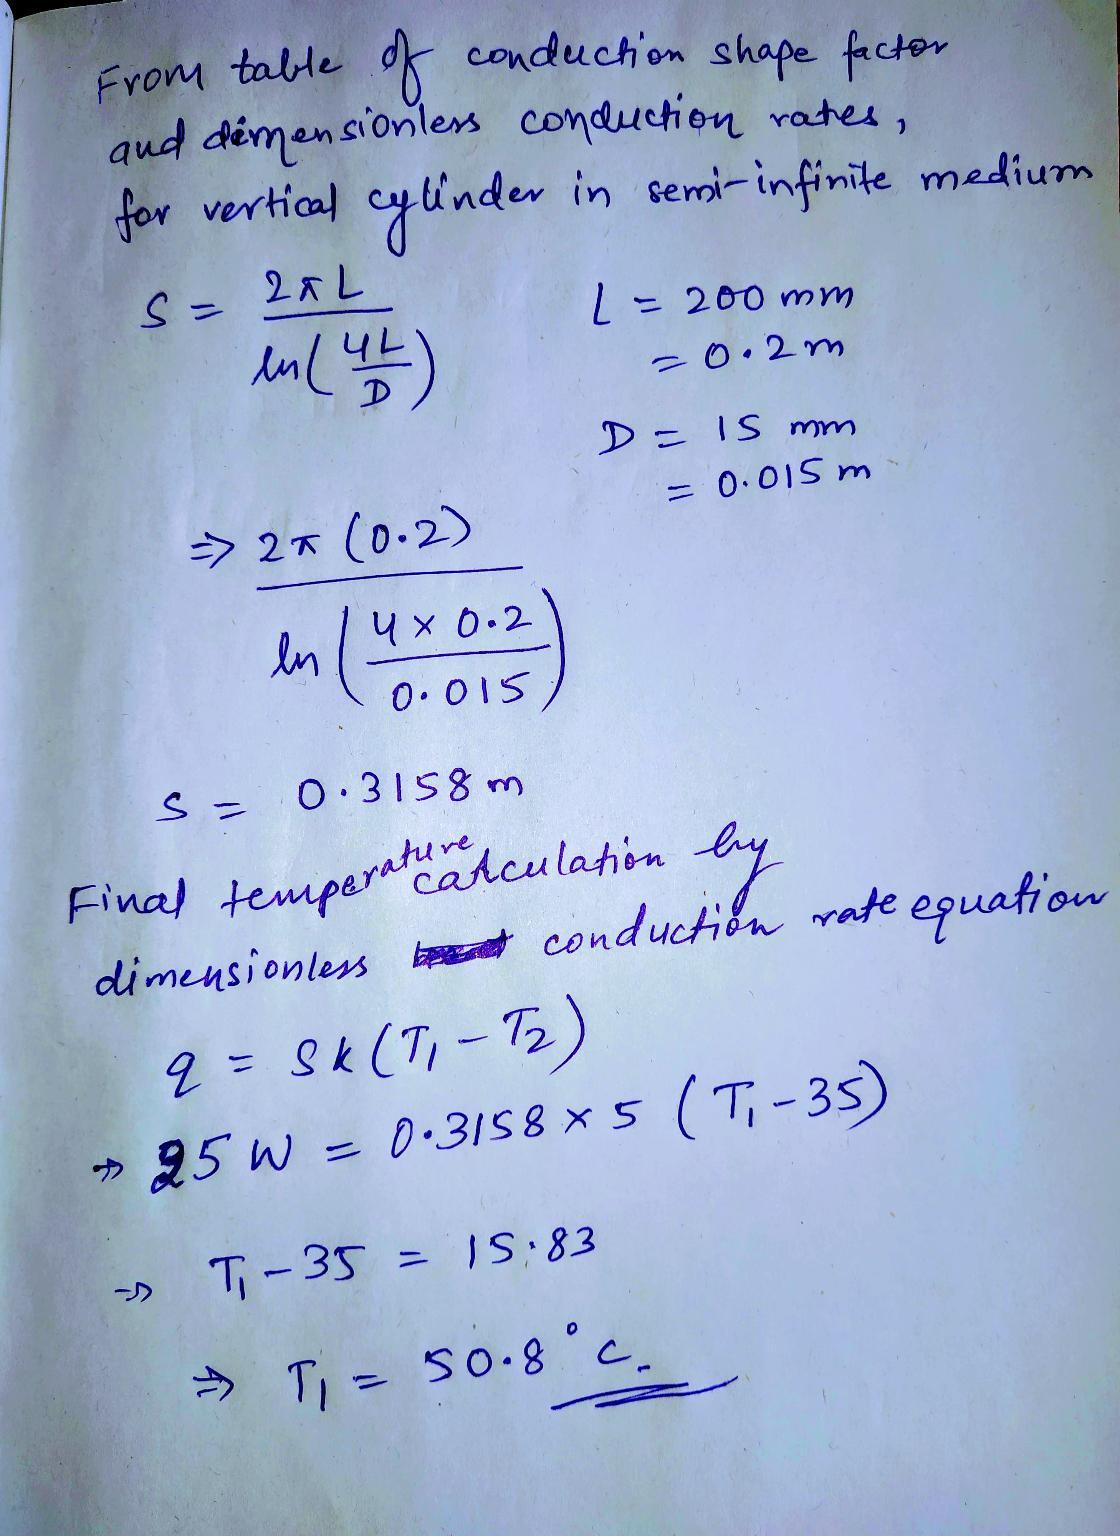 From table of conduction shape factor
and dimensionless conduction rates,
for vertical cylinder in semi-infinite medium
S = 2πL / ln(4L/D)
L = 200 mm
= 0.2 m
D = 15 mm
= 0.015 m
⇒ 2π (0.2) / ln(4 × 0.2 / 0.015)
S = 0.3158 m
Final temperature calculation by
dimensionless conduction rate equation
q = Sk(T₁ - T₂)
⇒ 25 W = 0.3158 × 5 (T₁ - 35)
⇒ T₁ - 35 = 15.83
⇒ T₁ = 50.8°C.